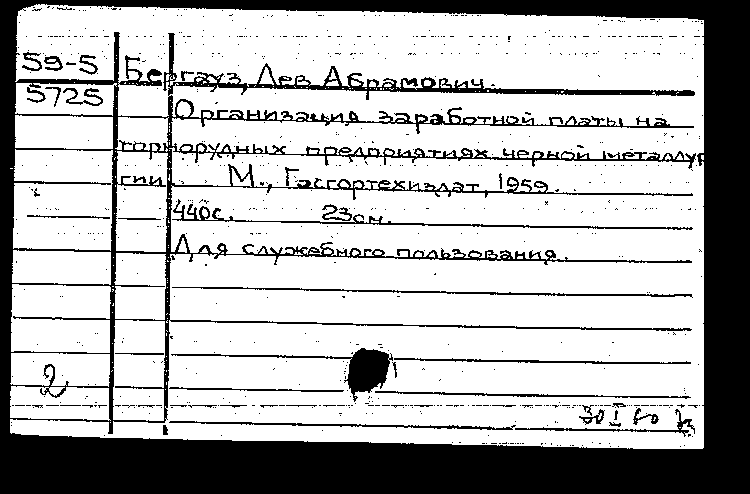 59-5 Бергауз, Лев Абрамович.
5725
Организация заработной платы на
горнорудных предприятиях черной металлур
гии. М., Госгортехиздат, 1959.
440с. 23см.
Для служебного пользования.
2
30 I 60